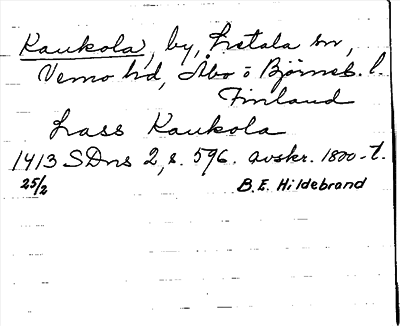 Kaukola, by, Letala sn,
Vemo hd, Åbo o Björneb. l.
Finland
Lass Kaukola
1413 SDns 2, s. 596. avskr. 1800-t.
25/2 B.E. Hildebrand